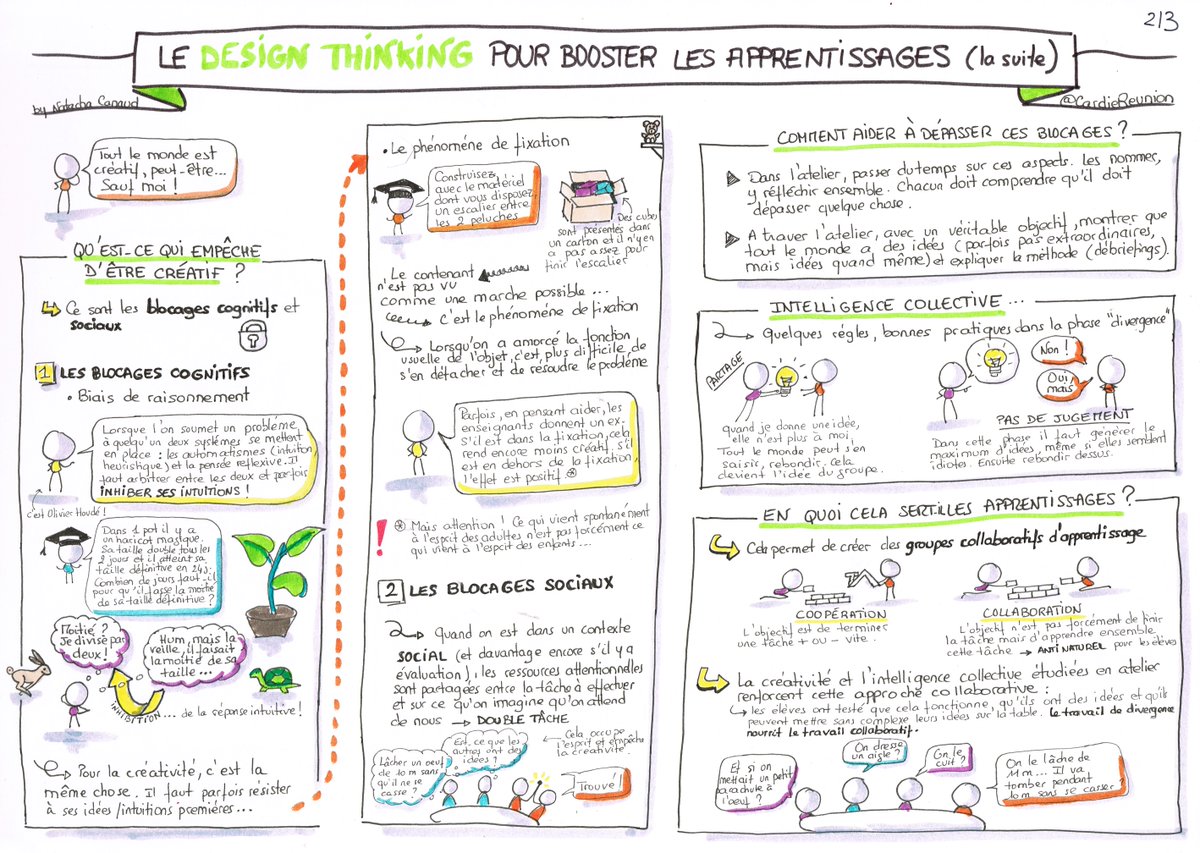 2/3
LE DESIGN THINKING POUR BOOSTER LES APPRENTISSAGES (la suite)
by Natacha Canaud
@CardieReunion
Tout le monde est
créatif, peut-être...
Sauf moi !
QU'EST-CE QUI EMPÊCHE
D'ÊTRE CRÉATIF ?
Ce sont les blocages cognitifs et
sociaux
1 LES BLOCAGES COGNITIFS
• Biais de raisonnement
Lorsque l'on soumet un problème
à quelqu'un deux systèmes se mettent
en place : les automatismes (intuition,
heuristique) et la pensée reflexive. Il
faut arbitrer entre les deux et parfois
INHIBER SES INTUITIONS !
c'est Olivier Houdé !
Dans 1 pot il y a
un haricot magique.
Sa taille double tous les
2 jours et il atteint sa
taille définitive en 24j.
Combien de jours faut-il
pour qu'il fasse la moitié
de sa taille définitive ?
Moitié ?
Je divise par
deux !
Hum, mais la
veille, il faisait
la moitié de sa
taille...
INHIBITION... de la réponse intuitive !
Pour la créativité, c'est la
même chose. Il faut parfois resister
à ses idées/intuitions premières...
• Le phénomène de fixation
Construisez,
avec le matériel
dont vous disposez,
un escalier entre
les 2 peluches
Des cubes
sont présentés dans
un carton et il n'y en
a pas assez pour
finir l'escalier
Le contenant
n'est pas vu
comme une marche possible...
c'est le phénomène de fixation
Lorsqu'on a amorcé la fonction
usuelle de l'objet, c'est plus difficile de
s'en détacher et de resoudre le problème
Parfois, en pensant aider, les
enseignants donnent un ex.
S'il est dans la fixation, cela
rend encore moins créatif, s'il
est en dehors de la fixation,
l'effet est positif. ⊛
! ⊛ Mais attention ! Ce qui vient spontanément
à l'esprit des adultes n'est pas forcément ce
qui vient à l'esprit des enfants...
2 LES BLOCAGES SOCIAUX
Quand on est dans un contexte
SOCIAL (et davantage encore s'il y a
évaluation), les ressources attentionnelles
sont partagées entre la tâche à effectuer
et sur ce qu'on imagine qu'on attend
de nous → DOUBLE TÂCHE
Cela occupe
l'esprit et empêche
la créativité.
Est-ce que les
autres ont des
idées ?
Lâcher un oeuf
de 10 m sans
qu'il ne se
casse ?
Trouvé !
COMMENT AIDER À DÉPASSER CES BLOCAGES ?
Dans l'atelier, passer du temps sur ces aspects. les nommer,
y réfléchir ensemble. Chacun doit comprendre qu'il doit
dépasser quelque chose.
A traver l'atelier, avec un véritable objectif, montrer que
tout le monde a des idées (parfois pas extraordinaires,
mais idées quand même) et expliquer la méthode (débriefings).
INTELLIGENCE COLLECTIVE...
Quelques régles, bonnes pratiques dans la phase "divergence"
PARTAGE
quand je donne une idée,
elle n'est plus à moi.
Tout le monde peut s'en
saisir, rebondir. Cela
devient l'idée du groupe.
Non !
Oui
mais
PAS DE JUGEMENT
Dans cette phase il faut générer le
maximum d'idées, même si elles semblent
idiotes. Ensuite rebondir dessus.
EN QUOI CELA SERT-IL LES APPRENTISSAGES ?
Cela permet de créer des groupes collaboratifs d'apprentissage
COOPÉRATION
L'objectif est de terminer
une tâche + ou - vite.
COLLABORATION
L'objectif n'est pas forcément de finir
la tâche mais d'apprendre ensemble
cette tâche → ANTI NATUREL pour les élèves
La créativité et l'intelligence collective étudiées en atelier
renforcent cette approche collaborative :
les élèves ont testé que cela fonctionne, qu'ils ont des idées et qu'ils
peuvent mettre sans complexe leurs idées sur la table. Le travail de divergence
nourrit le travail collaboratif.
Et si on
mettait un petit
parachute à
l'oeuf ?
On dresse
un aigle ?
On le
cuit ?
On le lâche de
11 m... Il va
tomber pendant
10m sans se casser ?